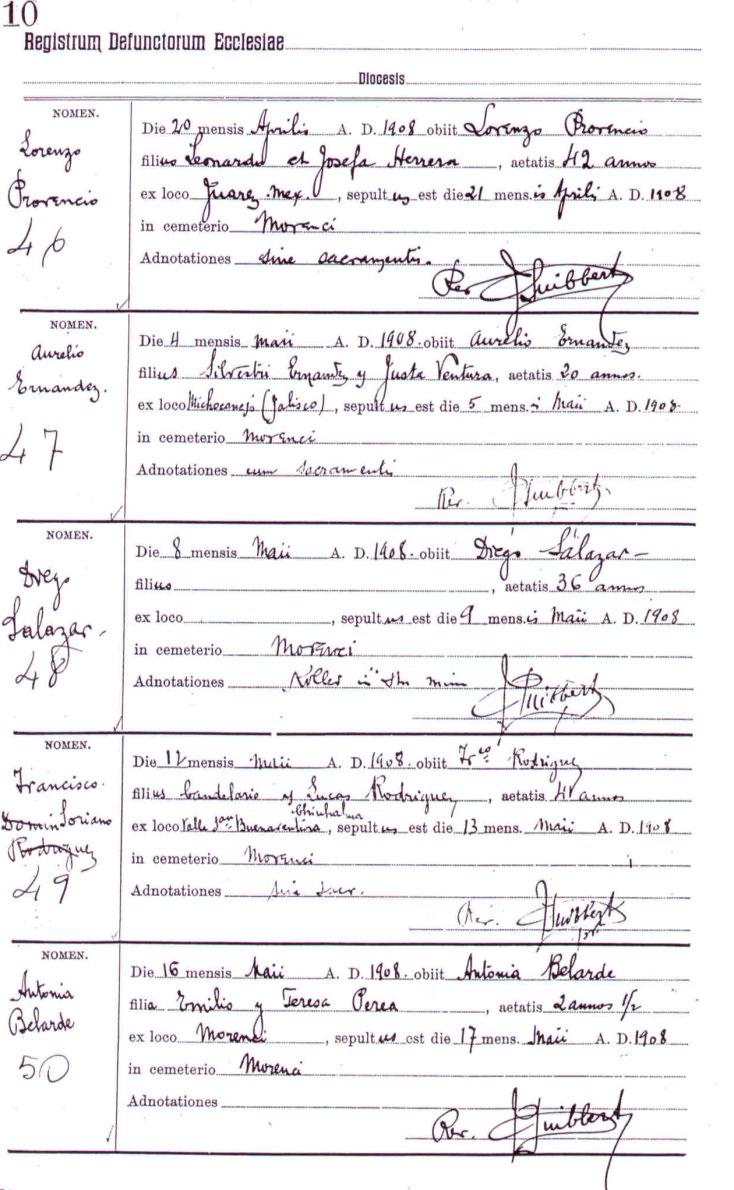 10
Registrum Defunctorum Ecclesiae
Diocesis
NOMEN.
Lorenzo
Provencio
46
Die 20 mensis Aprilis A. D. 1908 obiit Lorenzo Provencio
filius Leonardo et Josefa Herrera, aetatis 42 annos
ex loco Juarez Mex., sepultus est die 21 mensis Aprilis A. D. 1908
in cemeterio Morenci
Adnotationes sine sacramentis.
Rev. J Guibbert
NOMEN.
Aurelio
Ernandez.
47
Die 4 mensis Maii A. D. 1908. obiit Aurelio Ernandez
filius Silvestri Ernandez y Justa Ventura, aetatis 20 annos.
ex loco Michocanejo (Jalisco), sepultus est die 5 mens. Maii A. D. 1908
in cemeterio Morenci
Adnotationes cum sacramenti
Rev. J Guibbert.
NOMEN.
Diego
Salazar.
48
Die 8 mensis Maii A. D. 1908. obiit Diego Salazar
filius, aetatis 36 annos
ex loco, sepultus est die 9 mensis Maii A. D. 1908
in cemeterio Morenci
Adnotationes Killed in the mine
J Guibbert
NOMEN.
Francisco
Domin Soriano
Rodriguez
49
Die 12 mensis Maii A. D. 1908. obiit Frco Rodriguez
filius Candelario y Lucas Rodriguez, aetatis 41 annos
Chihuahua
ex loco Valle San Buenaventura, sepultus est die 13 mens. Maii A. D. 1908
in cemeterio Morenci
Adnotationes sine sacr.
Rev. J Guibbert
NOMEN.
Antonia
Belarde
50
Die 16 mensis Maii A. D. 1908. obiit Antonia Belarde
filia Emilio y Teresa Perea, aetatis 2 annos 1/2
ex loco Morenci, sepultus est die 17 mens. Maii A. D. 1908
in cemeterio Morenci
Adnotationes
Rev. J Guibbert